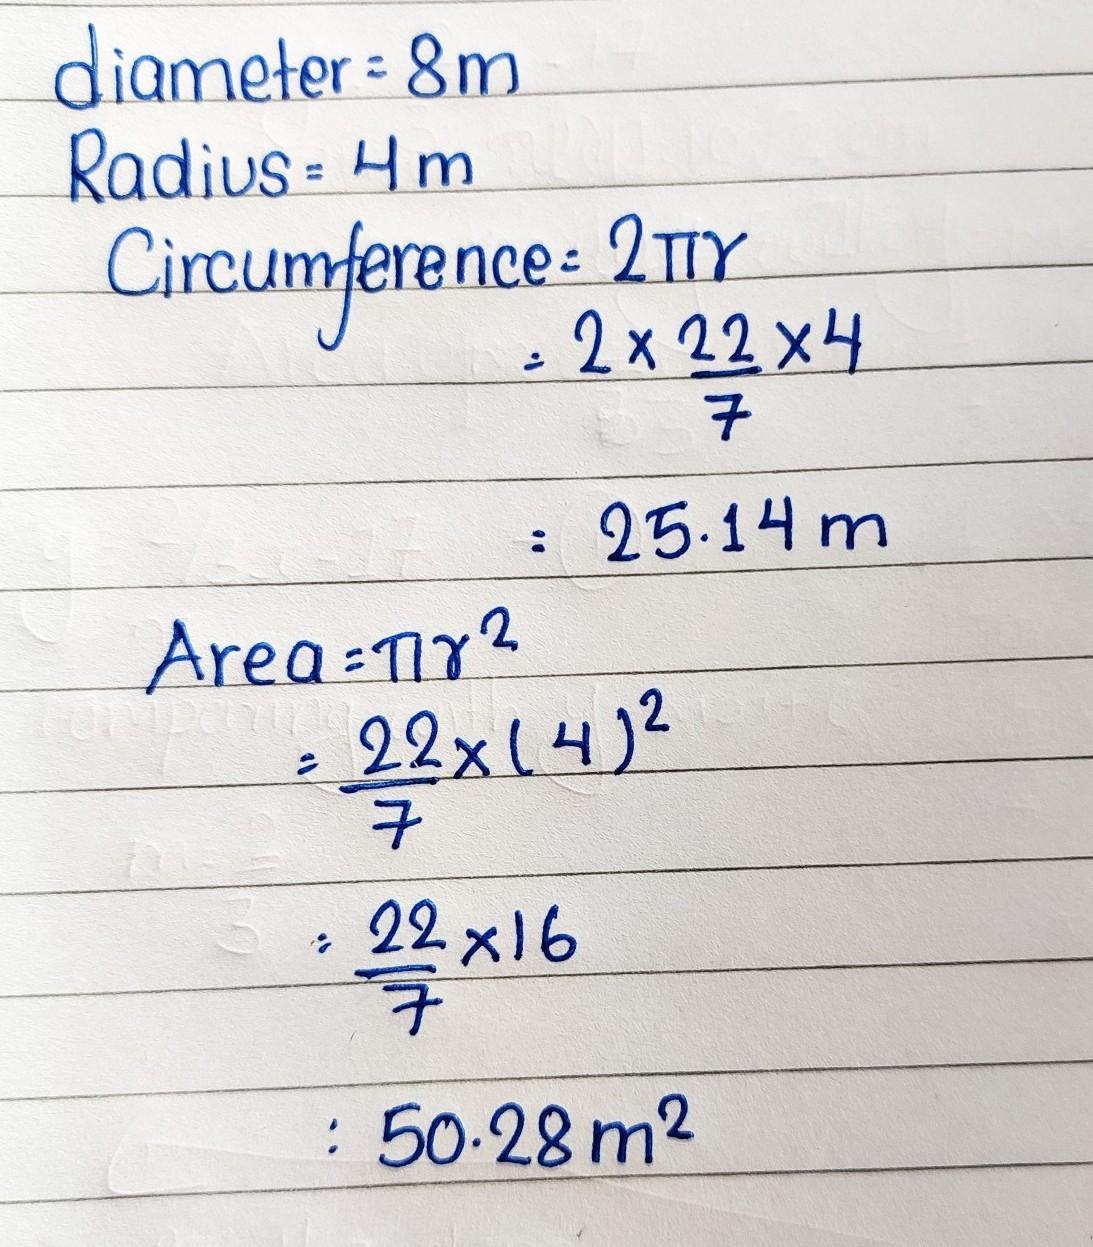 diameter = 8m
Radius = 4m
Circumference = 2πr
= 2 × 22/7 × 4
= 25.14 m
Area = πr²
= 22/7 × (4)²
= 22/7 × 16
= 50.28 m²